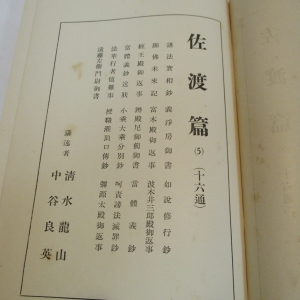 佐渡篇 (5) (十六通)
諸法實相鈔 義淨房御書 如説修行鈔
顯佛未來記 富木殿御返事 波木井三郎殿御返事
經王殿御返事 辨殿尼御前御書 當體義鈔
當體義鈔送狀 小乘大乘分別鈔 呵責謗法滅罪鈔
法華行者値難事 授職灌頂口傳鈔 彌源太殿御返事
遠藤左衛門尉御書
講述者 清水龍山
中谷良英